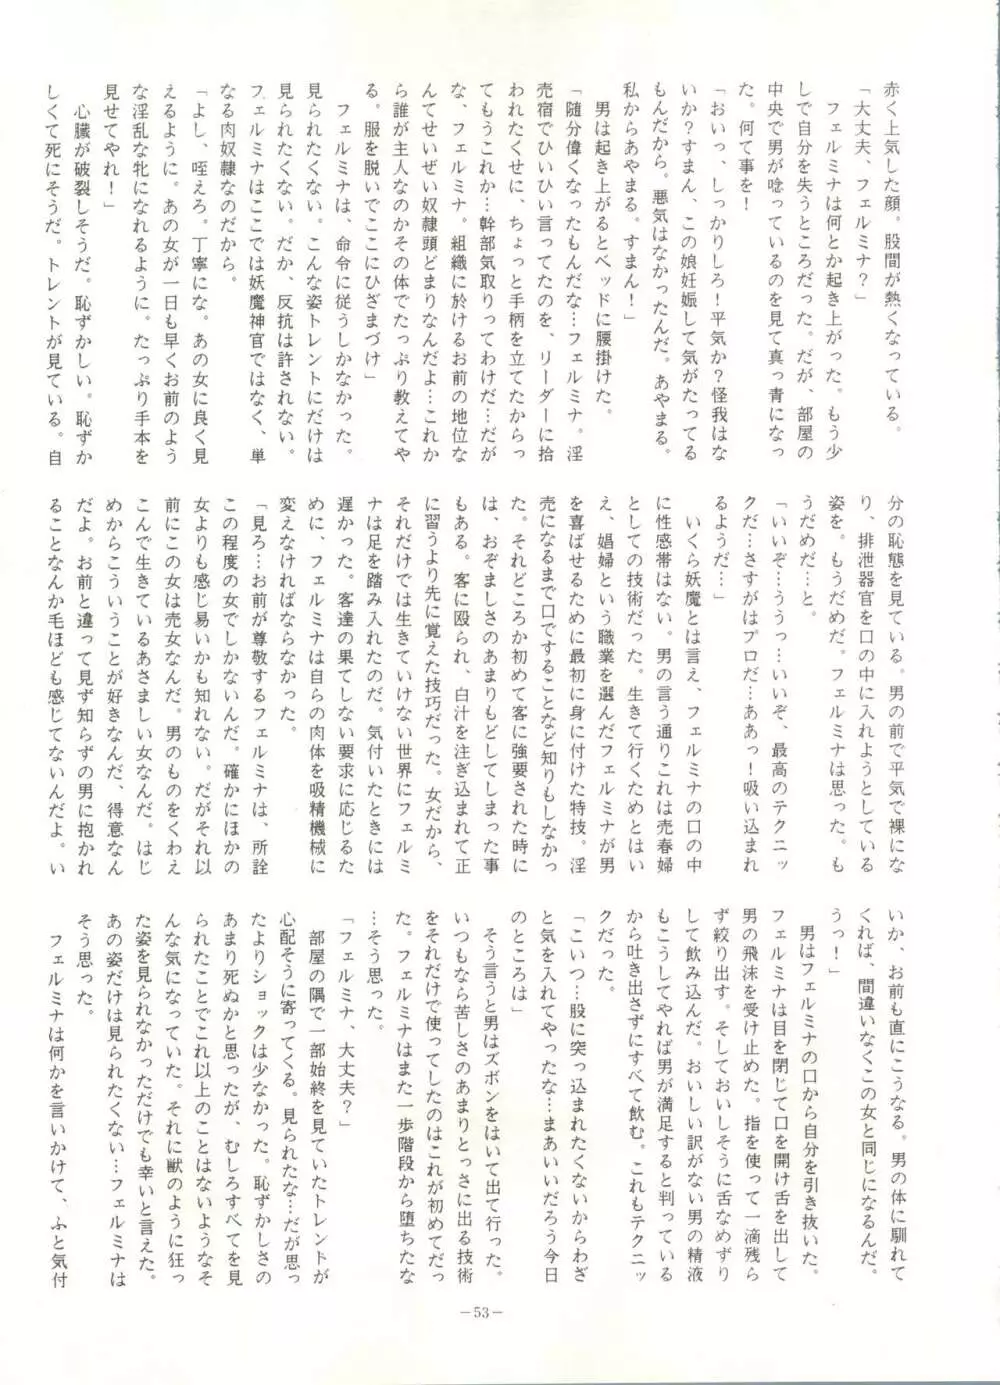 赤く上気した顔。股間が熱くなっている。
「大丈夫、フェルミナ？」
フェルミナは何とか起き上がった。もう少
しで自分を失うところだった。だが、部屋の
中央で男が唸っているのを見て真っ青になっ
た。何て事を！
「おいっ、しっかりしろ！平気か？怪我はな
いか？すまん、この娘妊娠して気がたってる
もんだから。悪気はなかったんだ。あやまる。
私からあやまる。すまん！」
男は起き上がるとベッドに腰掛けた。
「随分偉くなったもんだな…フェルミナ。淫
売宿でひいひい言ってたのを、リーダーに拾
われたくせに、ちょっと手柄を立てたからっ
てもうこれか…幹部気取りってわけだ…だが
な、フェルミナ。組織に於けるお前の地位な
んてせいぜい奴隷頭どまりなんだよ…これか
ら誰が主人なのかその体でたっぷり教えてや
る。服を脱いでここにひざまづけ」
フェルミナは、命令に従うしかなかった。
見られたくない。こんな姿トレントにだけは
見られたくない。だか、反抗は許されない。
フェルミナはここでは妖魔神官ではなく、単
なる肉奴隷なのだから。
「よし、咥えろ。丁寧にな。あの女に良く見
えるように。あの女が一日も早くお前のよう
な淫乱な牝になれるように。たっぷり手本を
見せてやれ！」
心臓が破裂しそうだ。恥ずかしい。恥ずか
しくて死にそうだ。トレントが見ている。自
分の恥態を見ている。男の前で平気で裸にな
り、排泄器官を口の中に入れようとしている
姿を。もうだめだ。フェルミナは思った。も
うだめだ…と。
「いいぞ…ううっ…いいぞ、最高のテクニッ
クだ…さすがはプロだ…ああっ！吸い込まれ
るようだ…」
いくら妖魔とは言え、フェルミナの口の中
に性感帯はない。男の言う通りこれは売春婦
としての技術だった。生きて行くためとはい
え、娼婦という職業を選んだフェルミナが男
を喜ばせるために最初に身に付けた特技。淫
売になるまで口ですることなど知りもしなかっ
た。それどころか初めて客に強要された時に
は、おぞましさのあまりもどしてしまった事
もある。客に殴られ、白汁を注ぎ込まれて正
に習うより先に覚えた技巧だった。女だから、
それだけでは生きていけない世界にフェルミ
ナは足を踏み入れたのだ。気付いたときには
遅かった。客達の果てしない要求に応じるた
めに、フェルミナは自らの肉体を吸精機械に
変えなければならなかった。
「見ろ…お前が尊敬するフェルミナは、所詮
この程度の女でしかないんだ。確かにほかの
女よりも感じ易いかも知れない。だがそれ以
前にこの女は売女なんだ。男のものをくわえ
こんで生きているあさましい女なんだ。はじ
めからこういうことが好きなんだ、得意なん
だよ。お前と違って見ず知らずの男に抱かれ
ることなんか毛ほども感じてないんだよ。い
いか、お前も直にこうなる。男の体に馴れて
くれば、間違いなくこの女と同じになるんだ。
うっ！」
男はフェルミナの口から自分を引き抜いた。
フェルミナは目を閉じて口を開け舌を出して
男の飛沫を受け止めた。指を使って一滴残ら
ず絞り出す。そしておいしそうに舌なめずり
して飲み込んだ。おいしい訳がない男の精液
もこうしてやれば男が満足すると判っている
から吐き出さずにすべて飲む。これもテクニッ
クだった。
「こいつ…股に突っ込まれたくないからわざ
と気を入れてやったな…まあいいだろう今日
のところは」
そう言うと男はズボンをはいて出て行った。
いつもなら苦しさのあまりとっさに出る技術
をそれだけで使ってしたのはこれが初めてだっ
た。フェルミナはまた一歩階段から堕ちたな
…そう思った。
「フェルミナ、大丈夫？」
部屋の隅で一部始終を見ていたトレントが
心配そうに寄ってくる。見られたな…だが思っ
たよりショックは少なかった。恥ずかしさの
あまり死ぬかと思ったが、むしろすべてを見
られたことでこれ以上のことはないようなそ
んな気になっていた。それに獣のように狂っ
た姿を見られなかっただけでも幸いと言えた。
あの姿だけは見られたくない…フェルミナは
そう思った。
フェルミナは何かを言いかけて、ふと気付
－53－